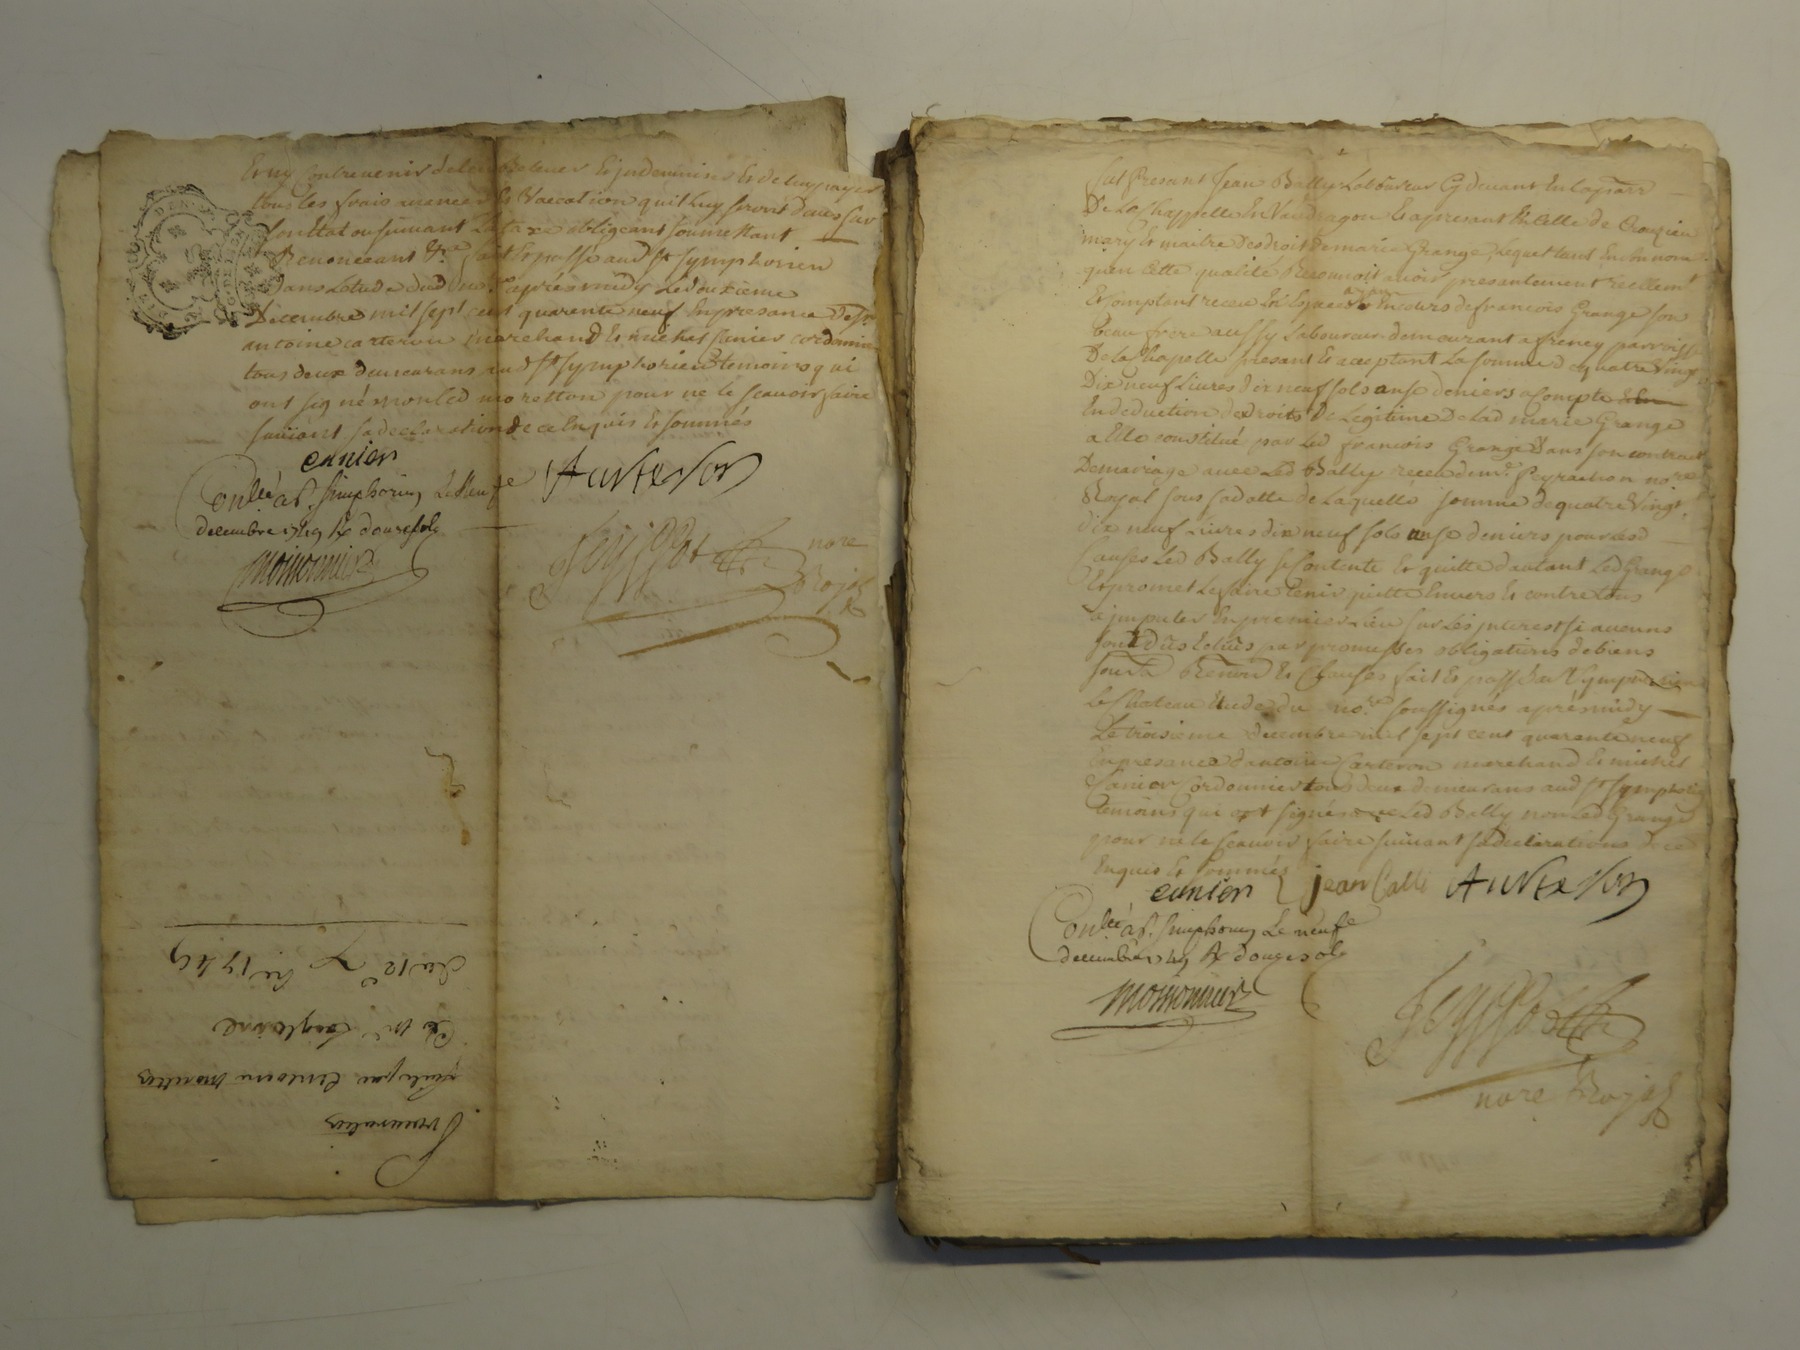 Et ny contrevenir de les Relever Et indemniser Et de luy payer
tous les frais avances Et Vaccation quil luy seront deues sur
son Etat ou suivant La taxe obligeant soumettant
Renonceant &c. fait Et passé aud St Symphorien
Dans Letude dud no.re aprés midy Le douxieme
Decembre mil sept cent quarente neuf En presance de Sr
antoine carteron marchand Et michel Canier cordonnier
tous deux demeurans aud St Symphorien temoins qui
ont signé non led moretton pour ne le scavoir faire
suivant sa declaration de ce Enquis Et sommés
canier
A Carteron
Conllé a St. simphorien Le Neufe
decembre 1749 Rx douze sols
moinonnier
nore
Royal
Procuration
faite par Antoine moretton
Du 12e Xbre 1749
fut Presant Jean Bally Laboureur Cy devant En la parr
De La Chappelle En Vaudragon Et apresant En Celle de
mary Et maitre des droits de marie Grange, Lequel tant En son nom
quen Cette qualité Reconnoit avoir presantement reellemt
Et comptant receu En Especes de cours de francois Grange son
beau frere aussy Laboureur demeurant a freney parroisse
De la Chapelle presant Et aceptant La somme de quatre Vingt
Dix neuf Livres dix neuf sols onse deniers a compte
En deduction des droits De Legitime De Lad marie Grange
a Elle constitué par Led francois Grange dans son contract
De mariage avec Led Bally receu de me. Peyrachon nore
Royal sous sa datte de Laquelle somme de quatre Vingt
dix neuf Livres dix neuf sols onse deniers pour lesd
Causes Led Bally se Contente Et quitte dautant Led Grange
Et promet Le faire tenir quitte Envers Et contre tous
a imputer En premier Lieu sur Les interest si aucuns
sont dûs par promesses obligations de biens
soum Renon Et Clauses fait Et passé a St Symphorien
Le Chateau Etude du no.re soussignés aprés midy
Le troisieme decembre mil sept cent quarente neuf
En presance dantoine Carteron marchand Et michel
Canier Cordonnier tous deux demeurans aud St Symphorien
temoins qui ont signés avec Led Bally non Led Grange
pour ne le scavoir faire suivant sa declarations de ce
Enquis Et sommés
canier
Jean balli
A Carteron
Conllé a St. simphorien Le neufe
decembre 1749 Rx douze sols
moinonnier
nore Royal